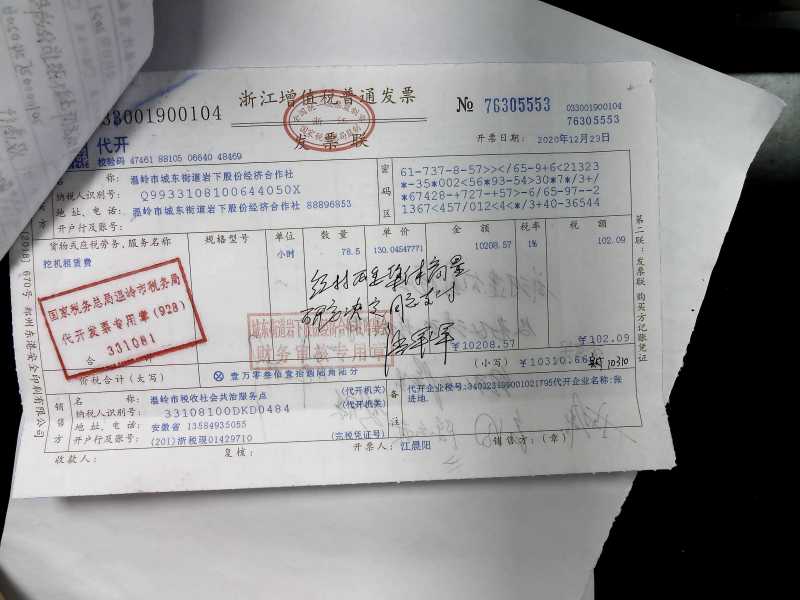 033001900104
浙江增值税普通发票
发票联
№ 76305553
033001900104
76305553
代开
校验码 47461 88105 06640 48469
开票日期： 2020年12月23日
名 称： 温岭市城东街道岩下股份经济合作社
纳税人识别号： Q9933108100644050X
地 址、电 话： 温岭市城东街道岩下股份经济合作社 88896853
开户行及账号：
密码区
61-737-8-57>></65-9+6<21323
*-35*002<56*93-54>30*7*/3+/
*67428-+727-+57>-6/65-97--2
1367<457/012<4<*/3+40-36544
货物或应税劳务、服务名称 规格型号 单位 数 量 单 价 金 额 税率 税 额
挖机租赁费 小时 78.5 130.04547771 10208.57 1% 102.09
国家税务总局温岭市税务局
代开发票专用章(928)
331081
经村两委集体商量
研究决定同意支付
财务审核专用章
合
￥10208.57 ￥102.09
价税合计(大写) ⊗ 壹万零叁佰壹拾圆陆角陆分 (小写) ￥10310.66
10310
销售方
名 称： 温岭市税收社会共治服务点 (代开机关)
纳税人识别号： 33108100DKD0484 (代开机关)
地 址、电 话： 安徽省 13584935055
开户行及账号： (201)浙税现01429710 (完税凭证号)
备注
代开企业名称:张
进地.
收款人： 复核： 开票人： 江晨阳 销售方：(章)
第二联：发票联 购买方记账凭证